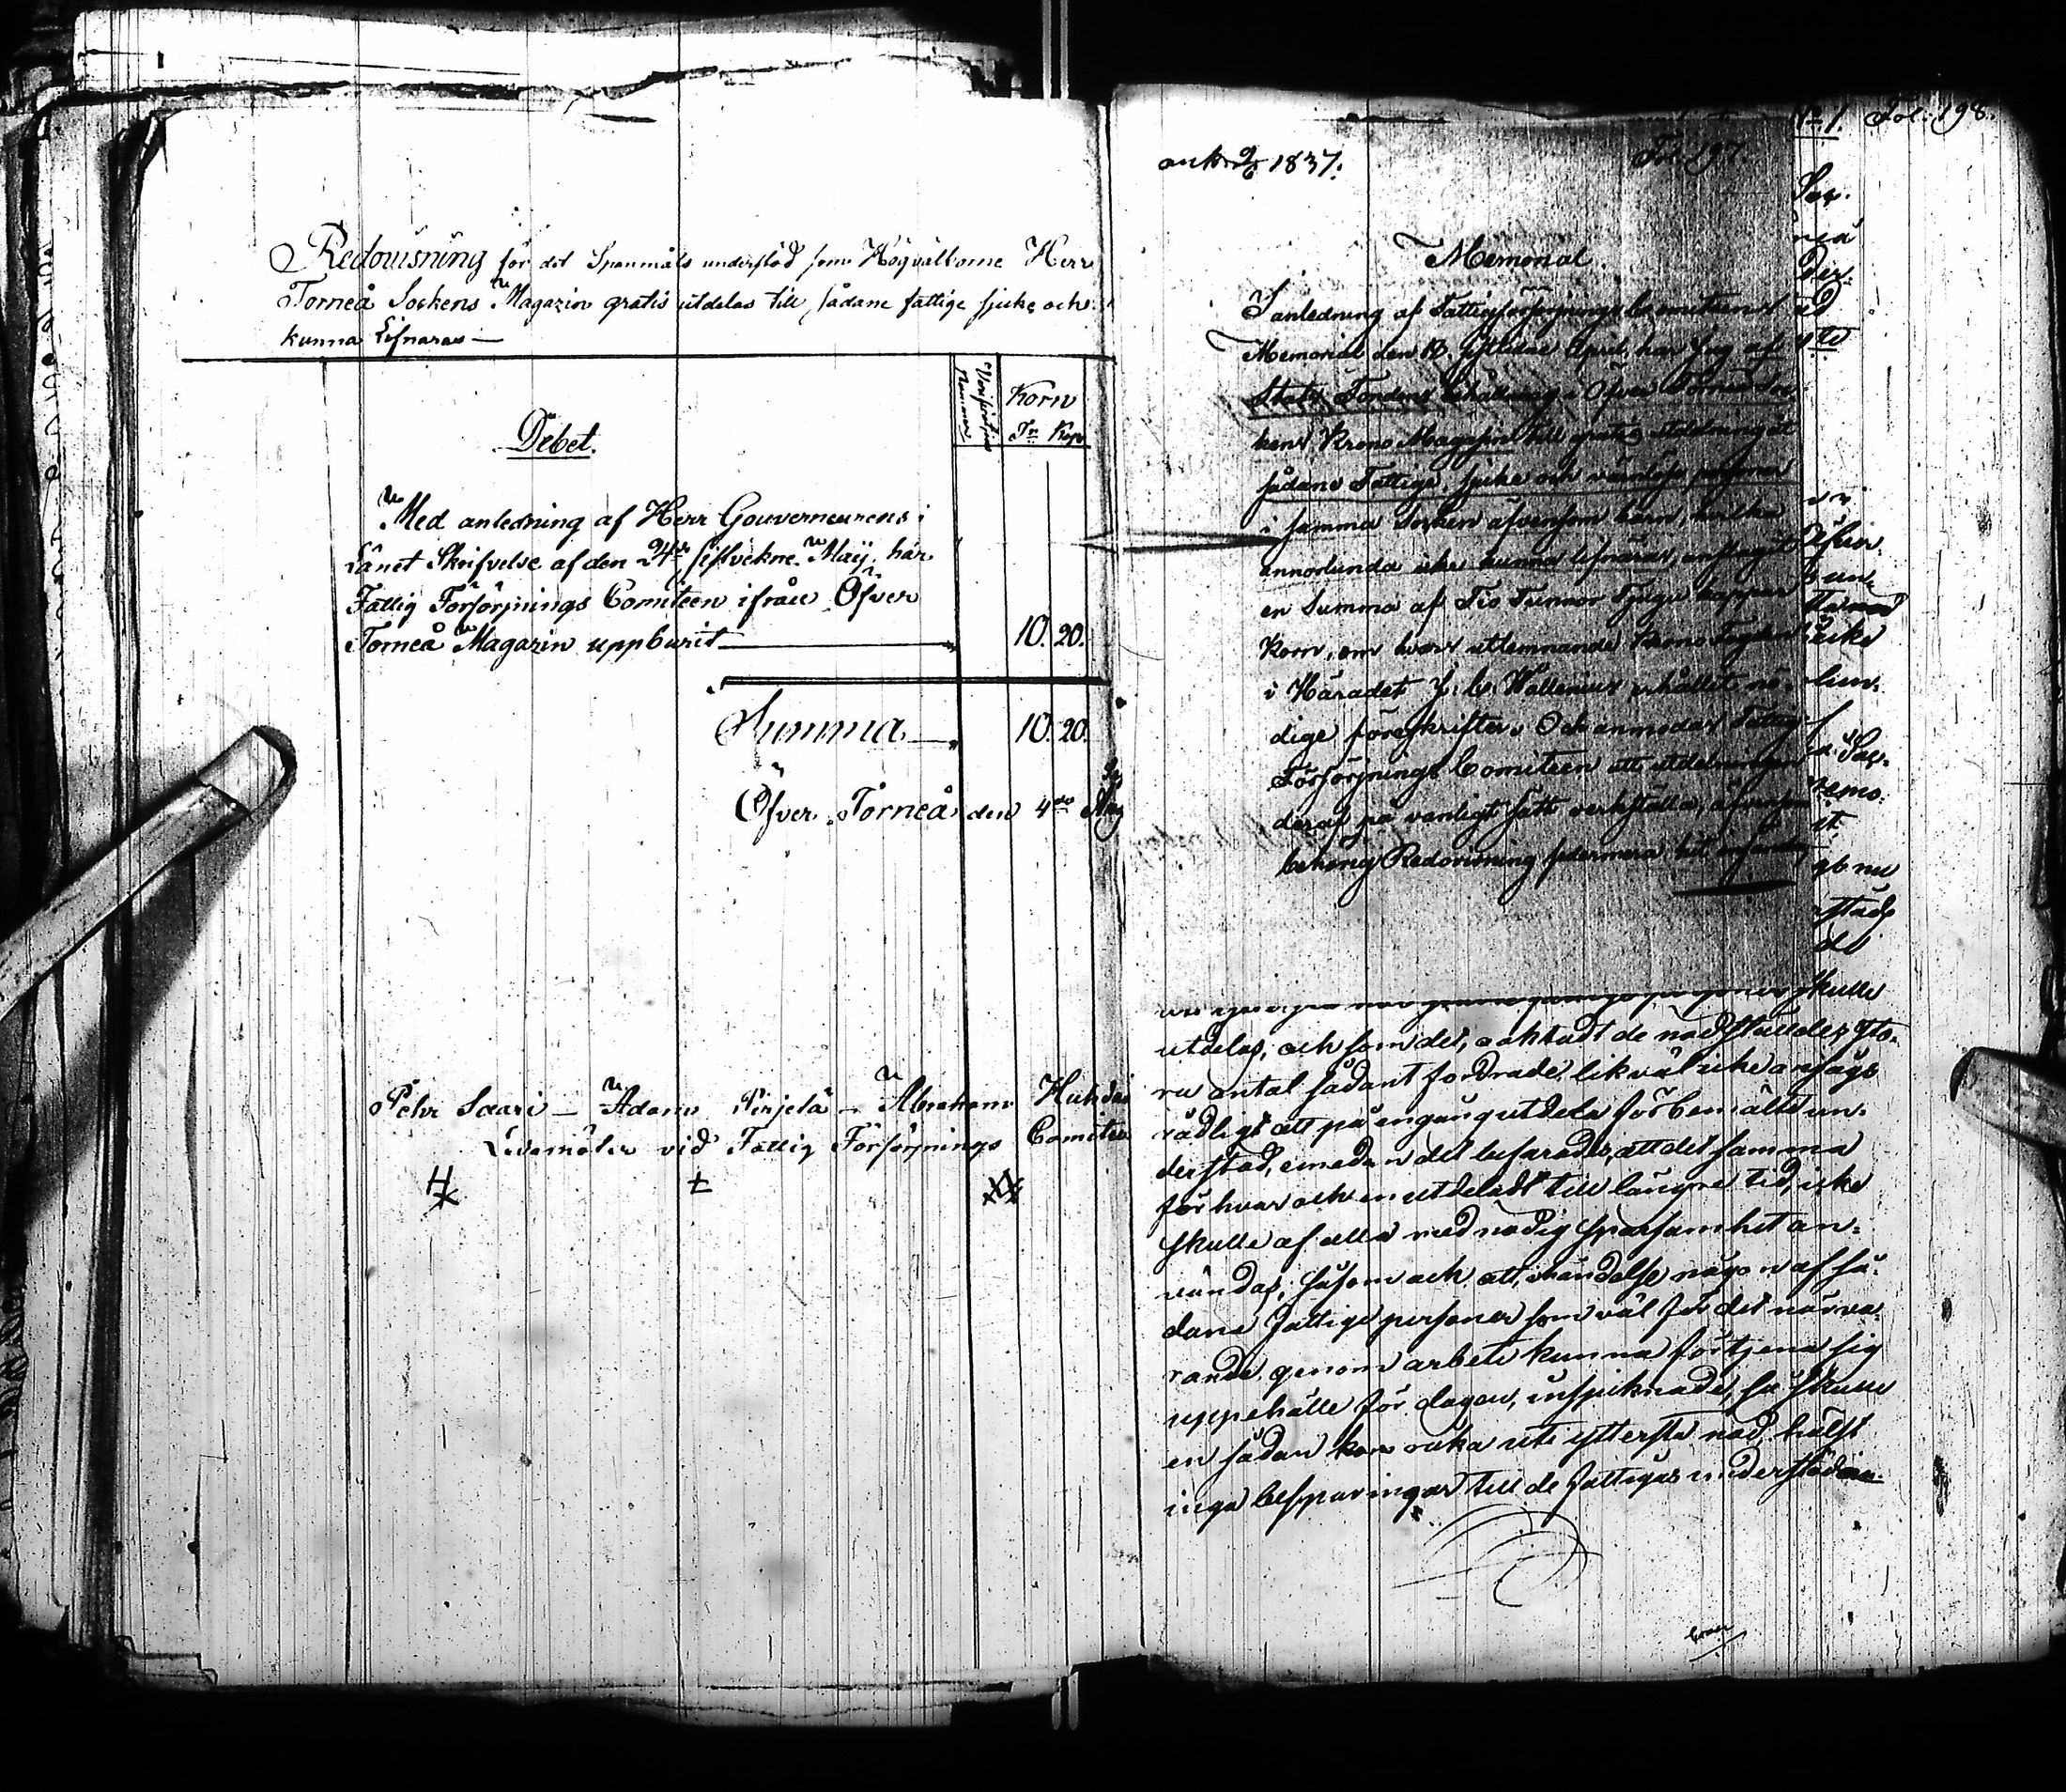 Redovisning för det Spanmåls understöd som Högvälborne Herr
Torneå Sockens Magazin gratis utdelas till sådane fattige sjuke och
kunna Lifnäras —
Verifications Nummer
Korn
Tn Kapr
Debet.
Med anledning af Herr Gouverneurens i
Länet Skrifvelse af den 24de sistvekne Maÿ, har
Fattig Försörjnings Comiteen ifrån Öfver
Torneå Magazin uppburit 10. 20.
Summa 10. 20.
Öfver Torneå den 4de
Pehr Saari — Adam Pirjetä — Abraham
Ledamöter vid Fattig Försörjnings Comiteen
No 1. Fol. 198.
ank. 2/6 1837. Fol 197
Memorial
I anledning af Fattigförsörjnings Comiteens
Memorial den 18 sistledne April, har Jag af
Stats Fondens behållning i Öfver Torneå Soc-
kens Krono Magasin till gratis utdelning åt
sådane Fattige, sjuke och värnlöse personer
i samma Socken äfvensom barn, hvilka
annorlunda icke kunna lifnäras, anslagit
en Summa af Tio Tunnor Tjugu kappar
Korn, om hvars utlemnande Krono Fogden
i Häradet J. C. Wallenius erhållit nö-
dige föreskrifter. Och anmodas Fattig
Försörjnings Comiteen att utdelningen
deraf på vanligt sätt verkställa, äfvensom
behörig Redovisning sedermera hit insända
skulle
utdelas; och som det, oaktadt de nödställdes sto-
ra antal sådant fordrade, likväl icke ansågs
rådligt att på engång utdela förbemälte un-
derstöd, emedan det befarades, att det samma
för hvar och en utdeladt till längre tid, icke
skulle af alla med nödig sparsamhet an-
vändas; såsom ock att, i händelse någon af så-
dane fattige personer som väl för det närva-
rande genom arbete kunna förtjena sig
uppehälle för dagen, insjuknade, så skulle
en sådan kom råka uti yttersta nöd, hälst
inga besparingar till de fattigas understödjan-